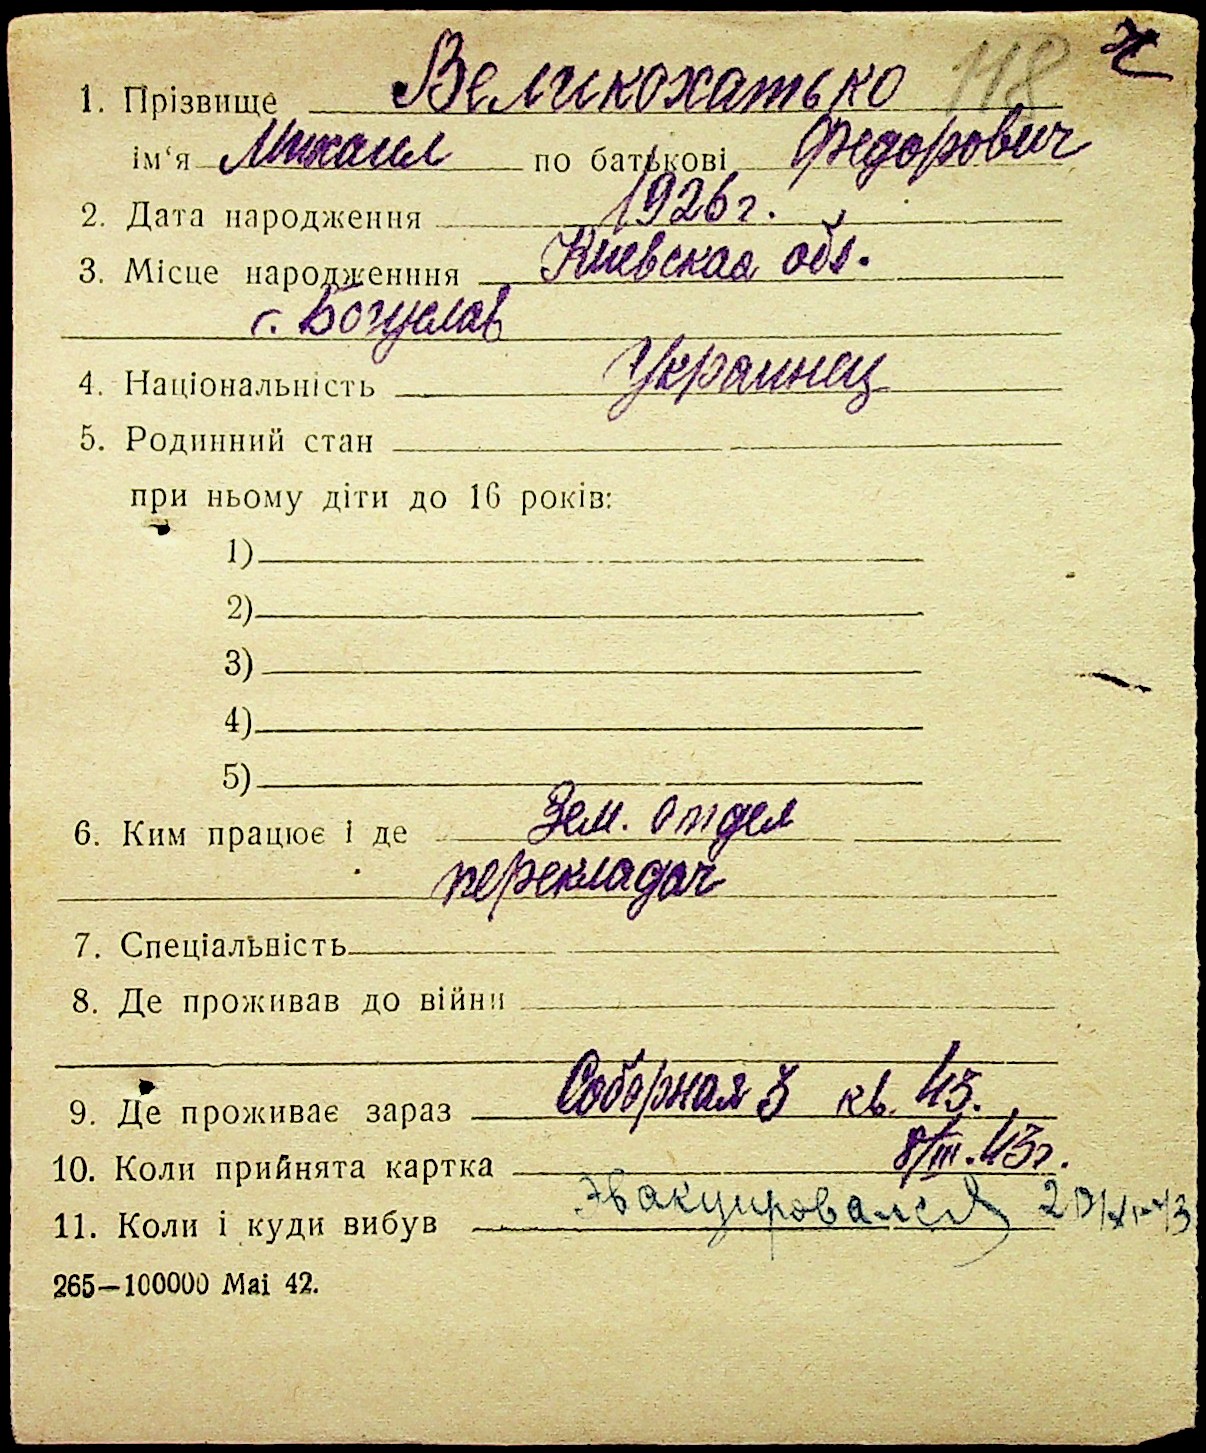 118
1. Прізвище Великохатько
ім‘я Михаил по батькові Федорович
2. Дата народження 1926 г.
3. Місце народженння Киевская обл.
г. Богуслав
4. Національність Украинец
5. Родинний стан
при ньому діти до 16 років:
1)
2)
3)
4)
5)
6. Ким працює і де Зем. отдел
перекладач
7. Спеціальність
8. Де проживав до війни
9. Де проживає зараз Соборная 3 кв. 43.
10. Коли прийнята картка 8/III.43 г.
11. Коли і куди вибув Эвакуировался
265—100000 Mai 42.